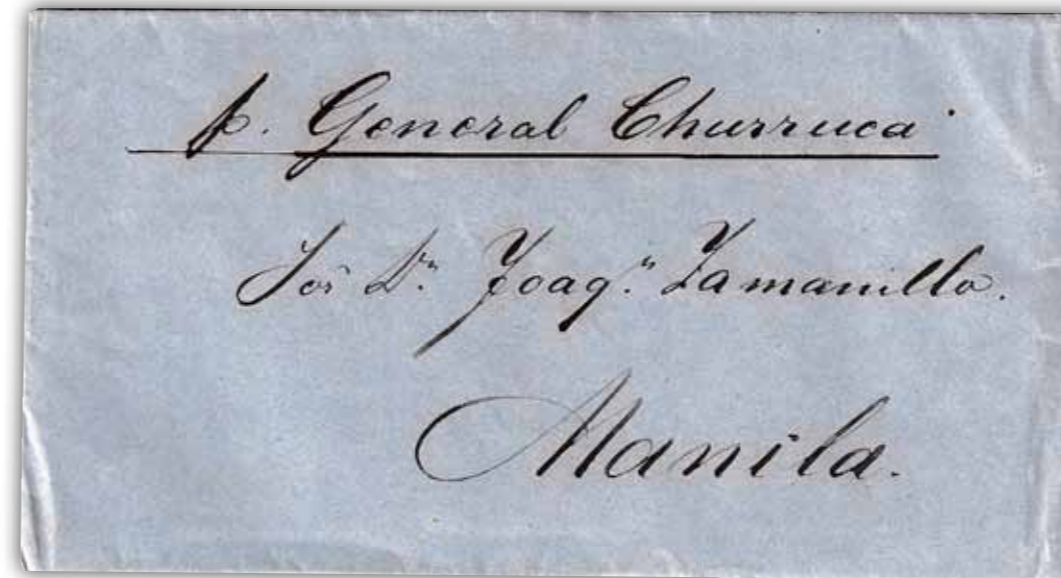 p. General Churruca
Sor Dn Joaqn Zamanillo.
Manila.